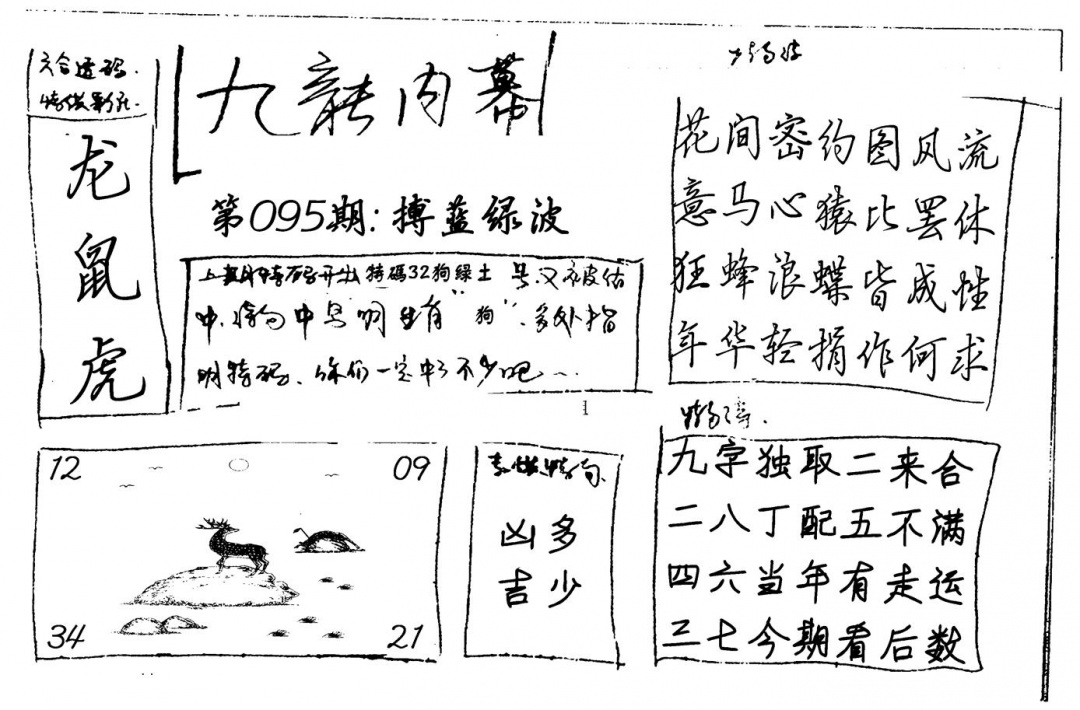 六合透码.
龙
鼠
虎
九龍内幕
第095期:搏蓝绿波
上期特码开出特碼32狗綠土号又被估
中,中号明"狗".多处指
明特码、你们一定中了不少吧
花间密约图风流
意马心猿比罢休
狂蜂浪蝶皆成性
年华轻捐作何求
九字独取二来合
二八丁配五不满
四六当年有走运
三七今期看后数
12
09
34
21
凶多
吉少